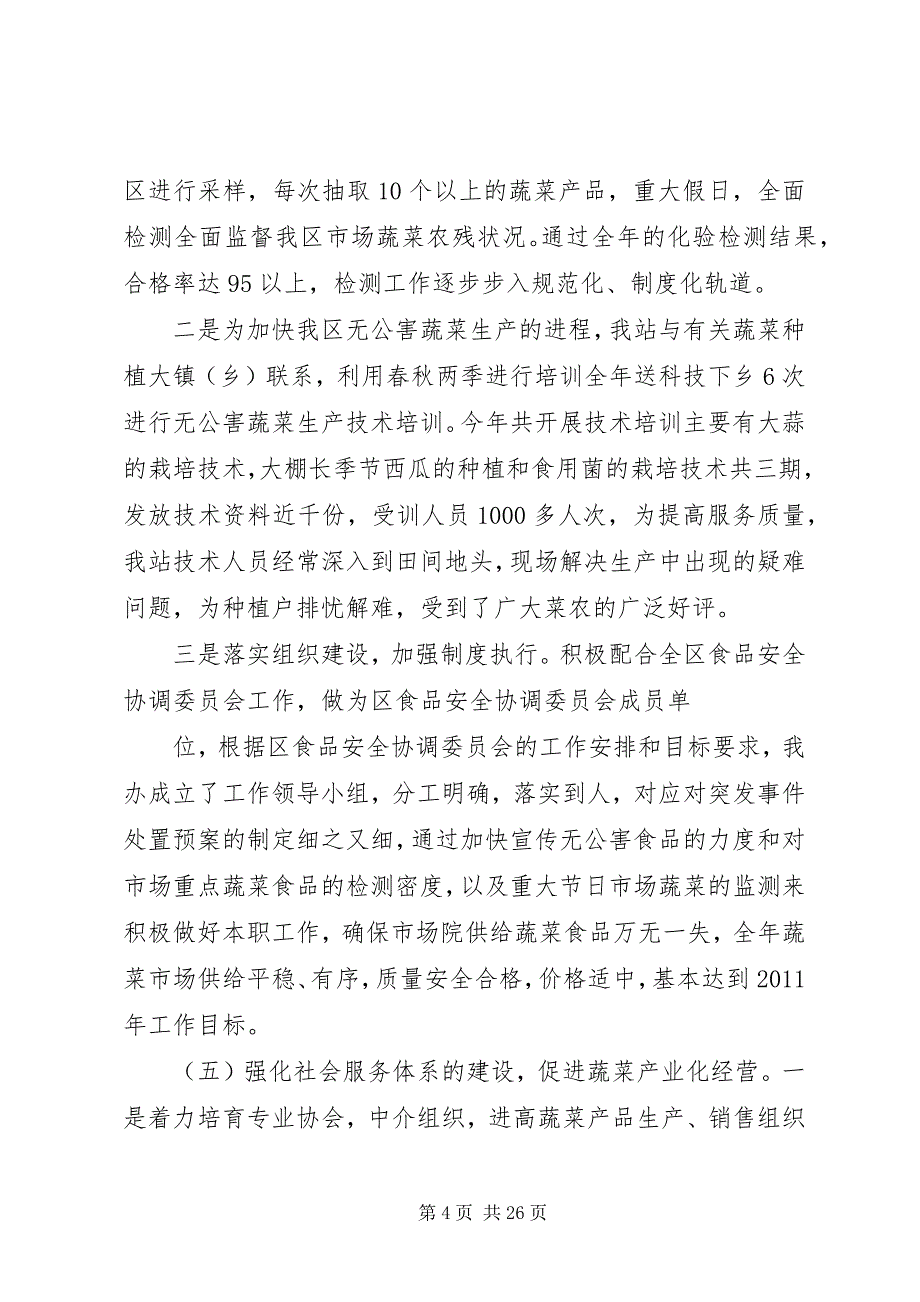 区进行采样，每次抽取 10 个以上的蔬菜产品，重大假日，全面
检测全面监督我区市场蔬菜农残状况。通过全年的化验检测结果，
合格率达 95 以上，检测工作逐步步入规范化、制度化轨道。
二是为加快我区无公害蔬菜生产的进程，我站与有关蔬菜种
植大镇（乡）联系，利用春秋两季进行培训全年送科技下乡 6 次
进行无公害蔬菜生产技术培训。今年共开展技术培训主要有大蒜
的栽培技术，大棚长季节西瓜的种植和食用菌的栽培技术共三期，
发放技术资料近千份，受训人员 1000 多人次，为提高服务质量，
我站技术人员经常深入到田间地头，现场解决生产中出现的疑难
问题，为种植户排忧解难，受到了广大菜农的广泛好评。
三是落实组织建设，加强制度执行。积极配合全区食品安全
协调委员会工作，做为区食品安全协调委员会成员单
位，根据区食品安全协调委员会的工作安排和目标要求，我
办成立了工作领导小组，分工明确，落实到人，对应对突发事件
处置预案的制定细之又细，通过加快宣传无公害食品的力度和对
市场重点蔬菜食品的检测密度，以及重大节日市场蔬菜的监测来
积极做好本职工作，确保市场院供给蔬菜食品万无一失，全年蔬
菜市场供给平稳、有序，质量安全合格，价格适中，基本达到 2011
年工作目标。
（五）强化社会服务体系的建设，促进蔬菜产业化经营。一
是着力培育专业协会，中介组织，进高蔬菜产品生产、销售组织
第 4 页 共 26 页